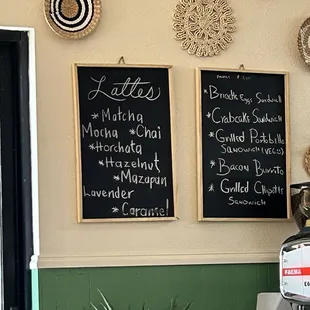 Lattes
* Matcha
Mocha * Chai
* Horchata
* Hazelnut
* Mazapan
Lavender
* Caramel
* Egg Sandwich
* Crabcake Sandwich
* Grilled Portobello
Sandwich (Veg)
* Bacon Burrito
* Grilled Chipotle
Sandwich
FAEMA